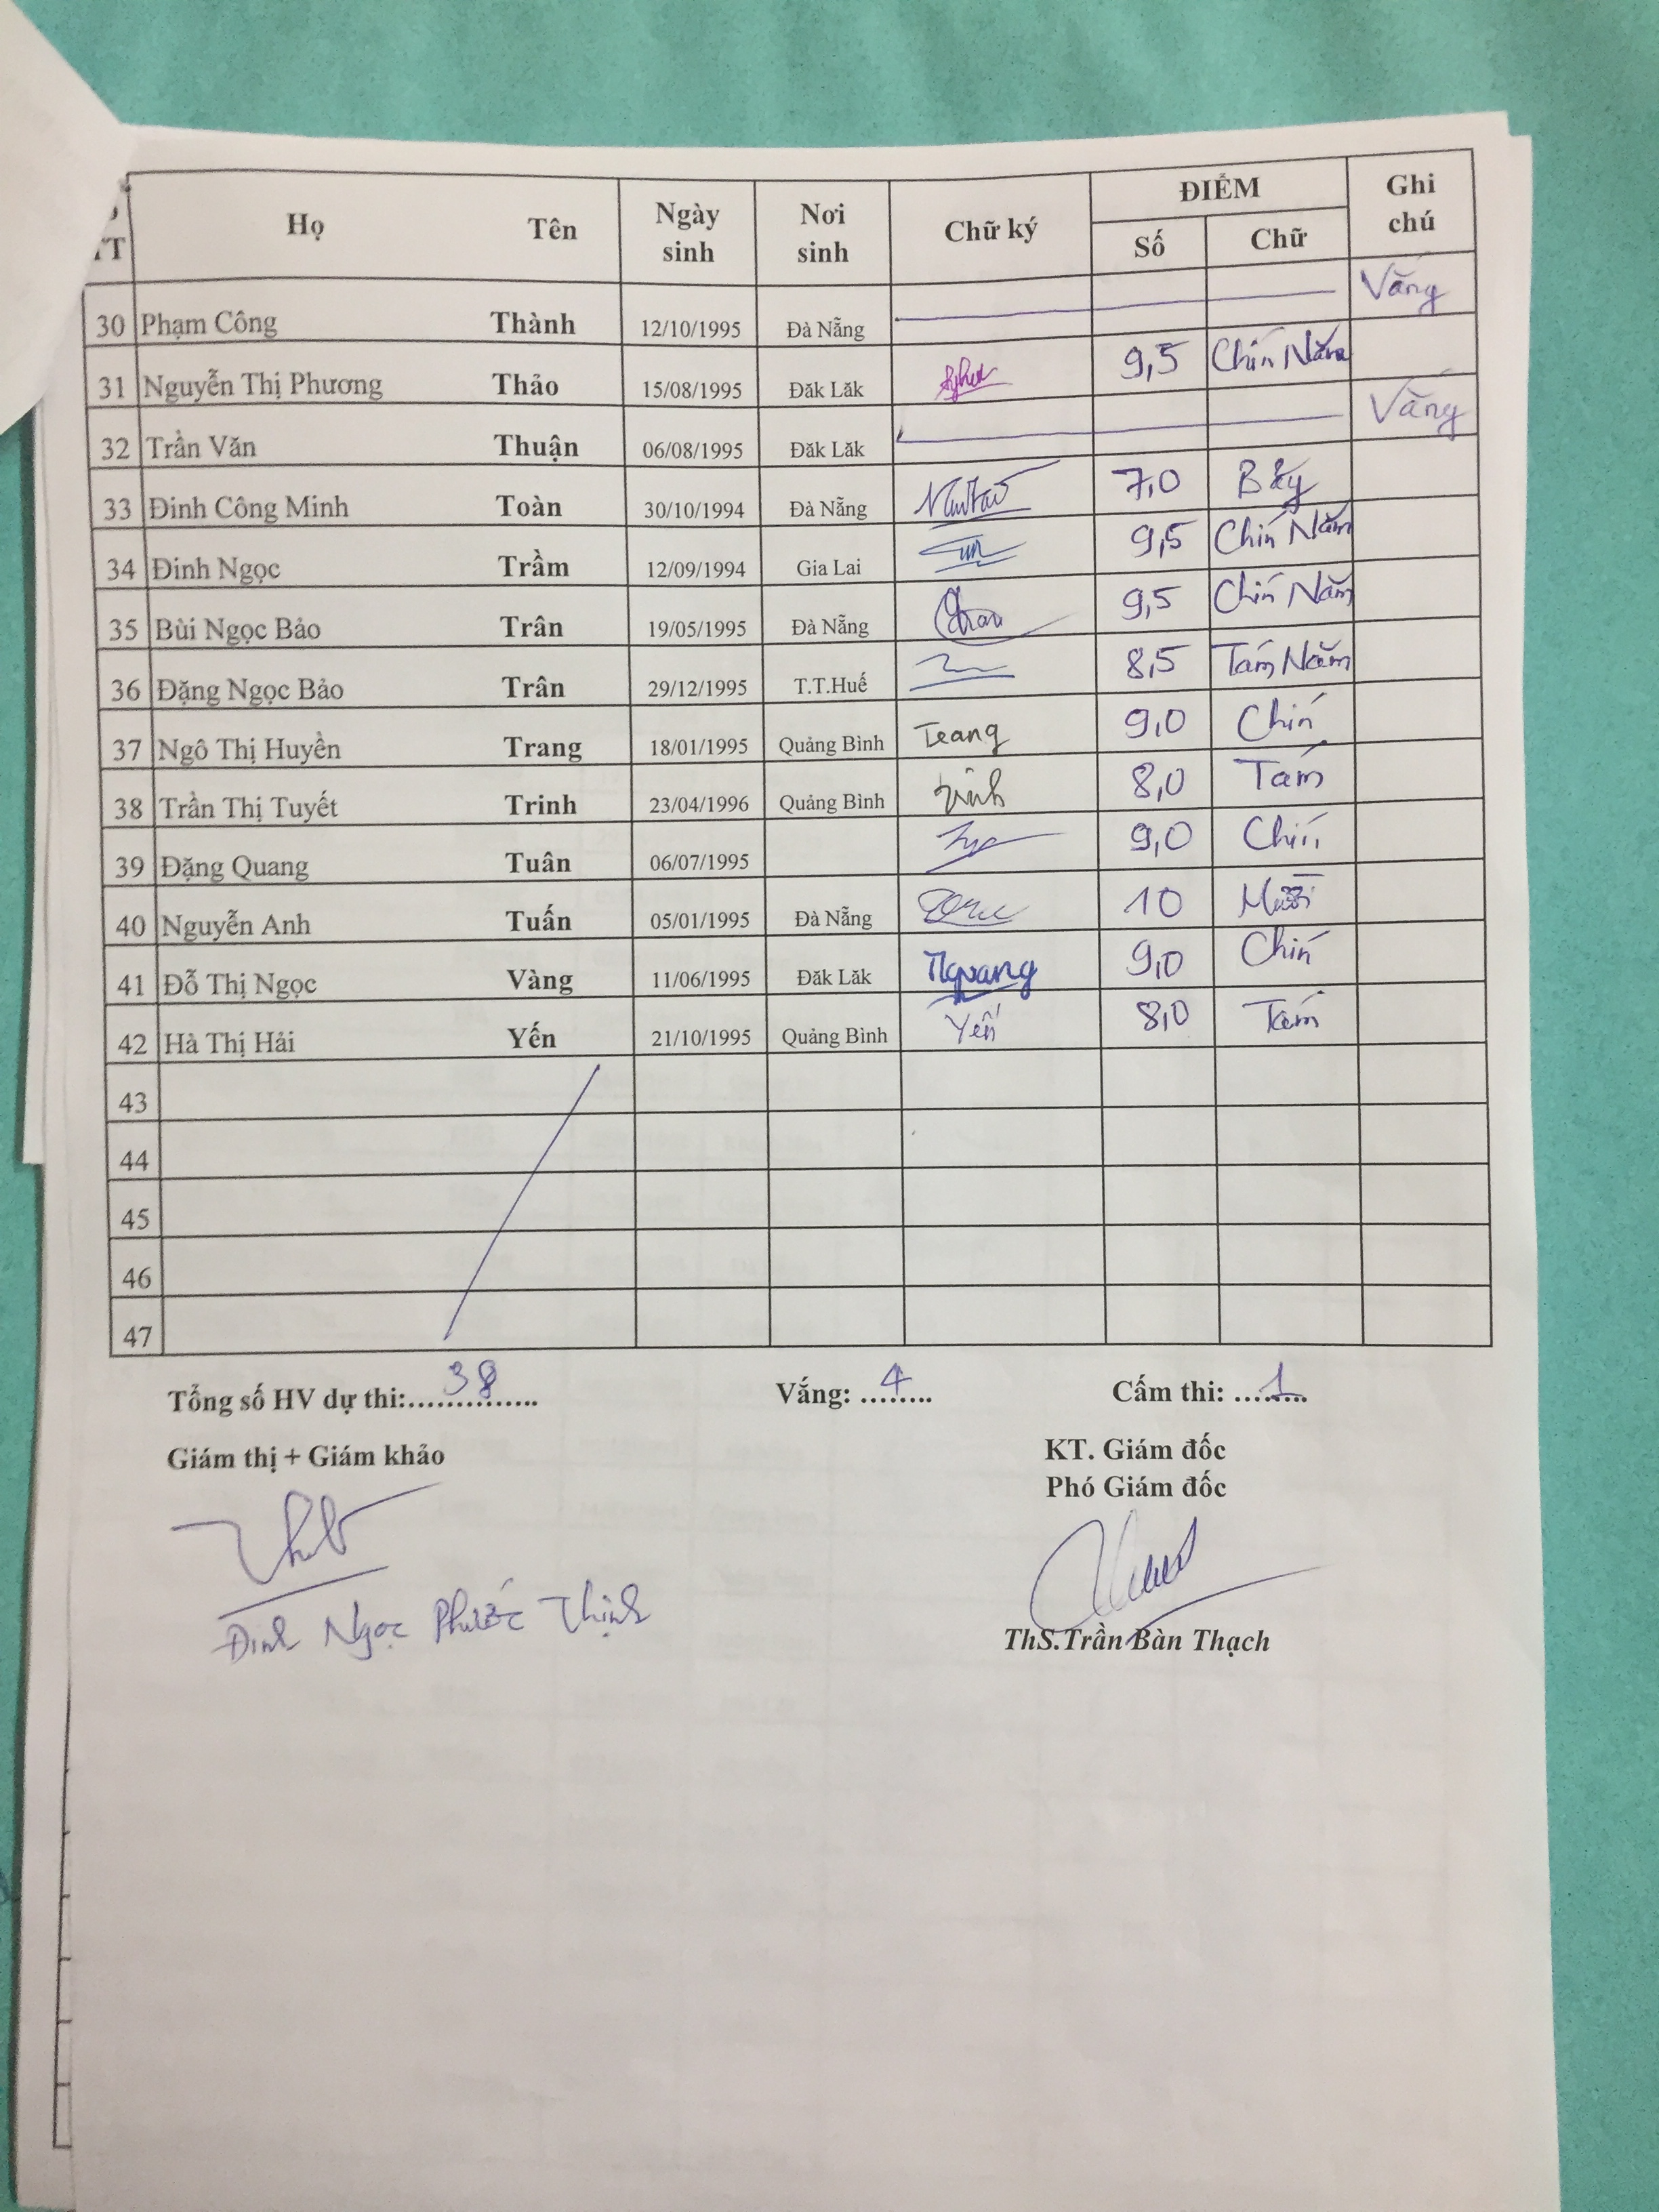 TT Họ Tên Ngày sinh Nơi sinh Chữ ký ĐIỂM Ghi chú
Số Chữ
30 Phạm Công Thành 12/10/1995 Đà Nẵng Vắng
31 Nguyễn Thị Phương Thảo 15/08/1995 Đăk Lăk 9,5 Chín Năm
32 Trần Văn Thuận 06/08/1995 Đăk Lăk Vắng
33 Đinh Công Minh Toàn 30/10/1994 Đà Nẵng 7,0 Bảy
34 Đinh Ngọc Trầm 12/09/1994 Gia Lai 9,5 Chín Năm
35 Bùi Ngọc Bảo Trân 19/05/1995 Đà Nẵng 9,5 Chín Năm
36 Đặng Ngọc Bảo Trân 29/12/1995 T.T.Huế 8,5 Tám Năm
37 Ngô Thị Huyền Trang 18/01/1995 Quảng Bình Trang 9,0 Chín
38 Trần Thị Tuyết Trinh 23/04/1996 Quảng Bình Trinh 8,0 Tám
39 Đặng Quang Tuân 06/07/1995 9,0 Chín
40 Nguyễn Anh Tuấn 05/01/1995 Đà Nẵng 10 Mười
41 Đỗ Thị Ngọc Vàng 11/06/1995 Đăk Lăk 9,0 Chín
42 Hà Thị Hải Yến 21/10/1995 Quảng Bình Yến 8,0 Tám
43
44
45
46
47
Tổng số HV dự thi:....38.... Vắng: ...4... Cấm thi: ...1...
Giám thị + Giám khảo KT. Giám đốc
Phó Giám đốc
Đinh Ngọc Phước Thịnh
ThS.Trần Bàn Thạch